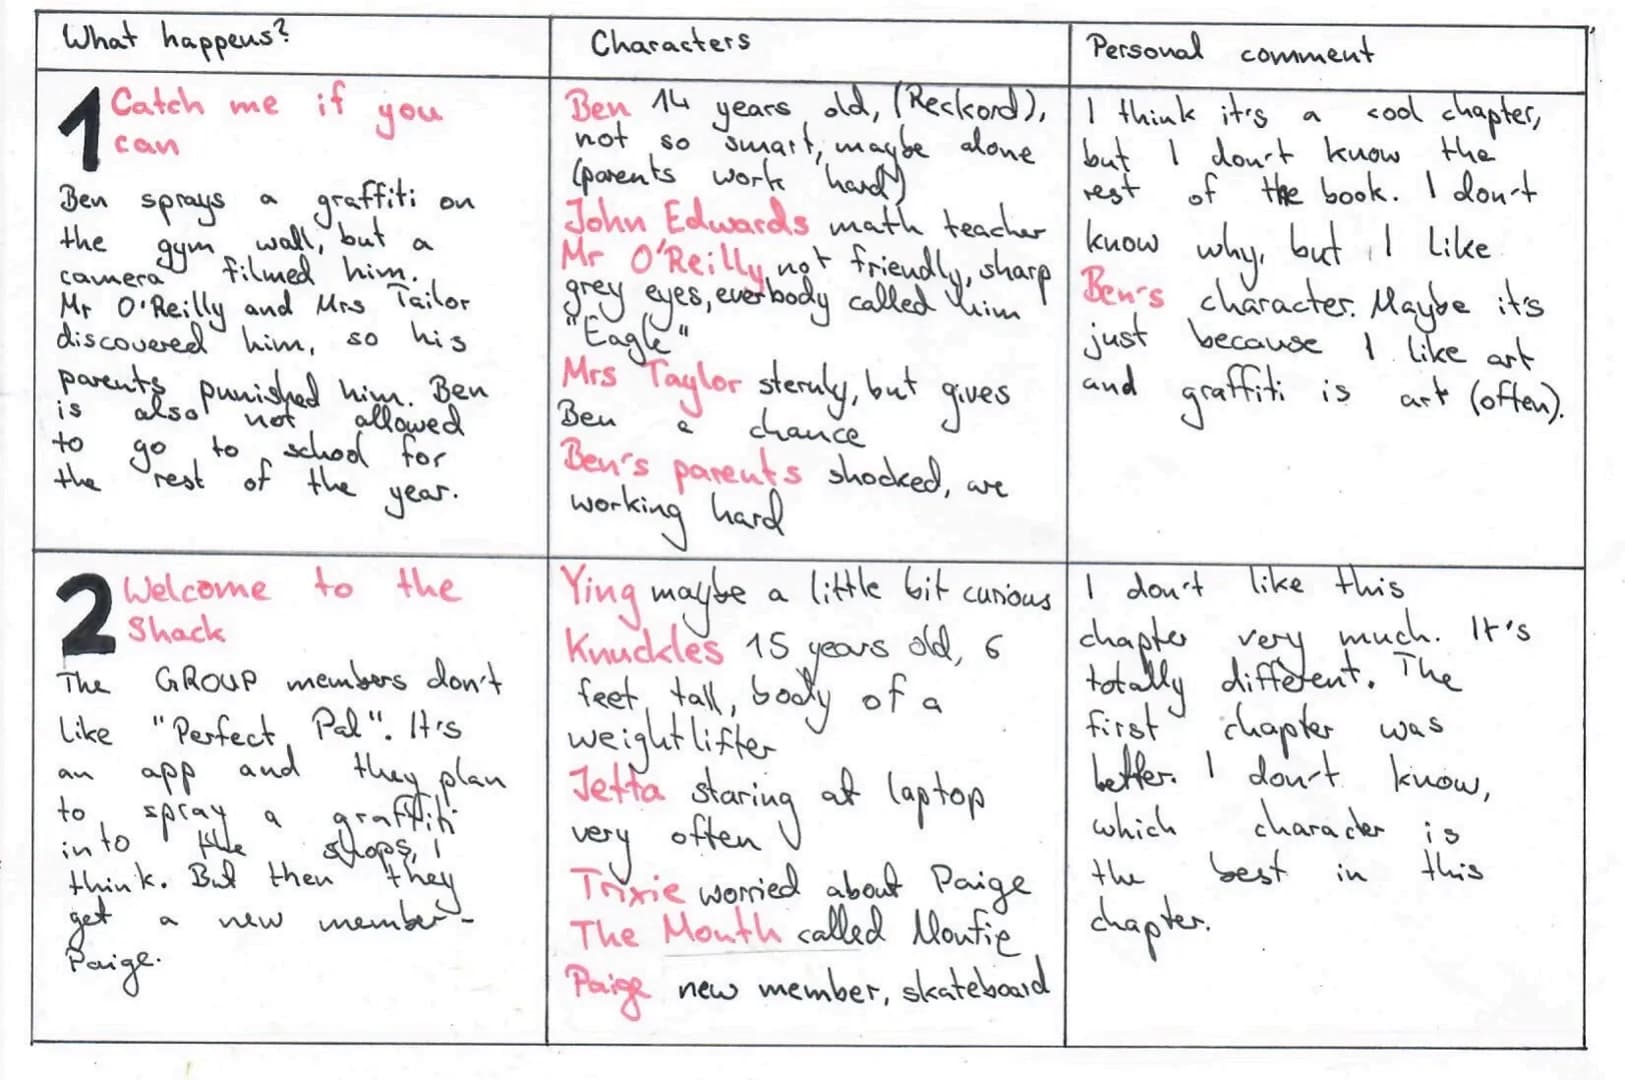 What happens?
Characters
Personal comment
1 Catch me if you
can
Ben sprays a graffiti on
the gym wall, but a
camera filmed him.
Mr O'Reilly and Mrs Tailor
discovered him, so his
parents punished him. Ben
is also not allowed
to go to school for
the rest of the year.
Ben 14 years old, (Reckord),
not so smart, maybe alone
(parents work hard)
John Edwards math teacher
Mr O'Reilly, not friendly, sharp
grey eyes, everbody called him
"Eagle"
Mrs Taylor sternly, but gives
Ben a chance
Ben's parents shocked, are
working hard
I think it's a cool chapter,
but I don't know the
rest of the book. I don't
know why, but I like
Ben's character. Maybe it's
just because I like art
and graffiti is art (often).
2 Welcome to the
Shack
The GROUP members don't
like "Perfect Pal". It's
an app and they plan
to spray a graffiti
into the shops, I
think. But then they
get a new member-
Paige.
Ying maybe a little bit curious
Knuckles 15 years old, 6
feet tall, body of a
weightlifter
Jetta staring at laptop
very often
Trixie worried about Paige
The Mouth called Moutie
Paige new member, skateboard
I don't like this
chapter very much. It's
totally different. The
first chapter was
better. I don't know,
which character is
the best in this
chapter.